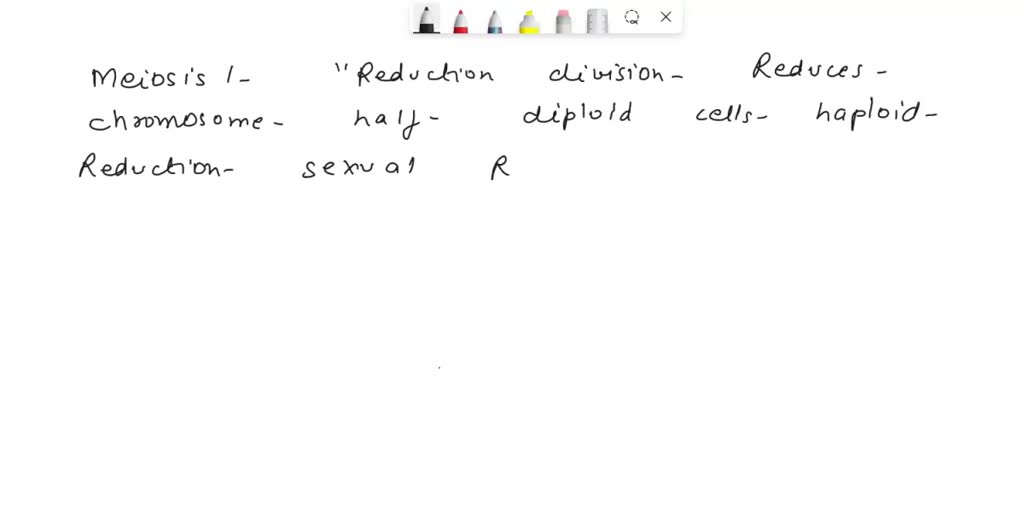 Meiosis 1- "Reduction division- Reduces-
chromosome- half- diploid cells- haploid-
Reduction- sexual R